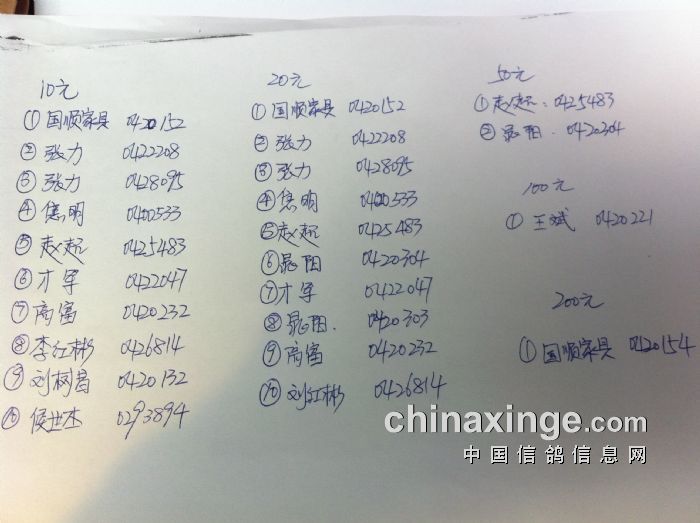 10元
① 国顺家具 0420152
② 张力 0422208
③ 张力 0428095
④ 焦明 0400533
⑤ 赵起 0425483
⑥ 才军 0422047
⑦ 商富 0420232
⑧ 李红彬 0426814
⑨ 刘树昌 0420132
⑩ 侯世杰 0293894
20元
① 国顺家具 0420152
② 张力 0422208
③ 张力 0428095
④ 焦明 0400533
⑤ 赵起 0425483
⑥ 晁阳 0420304
⑦ 才军 0422047
⑧ 晁阳. 0420303
⑨ 商富 0420232
⑩ 刘红彬 0426814
50元
① 赵起. 0425483
② 晁阳. 0420304
100元
① 王斌 0420221
200元
① 国顺家具 0420154
chinaxinge.com
中国信鸽信息网